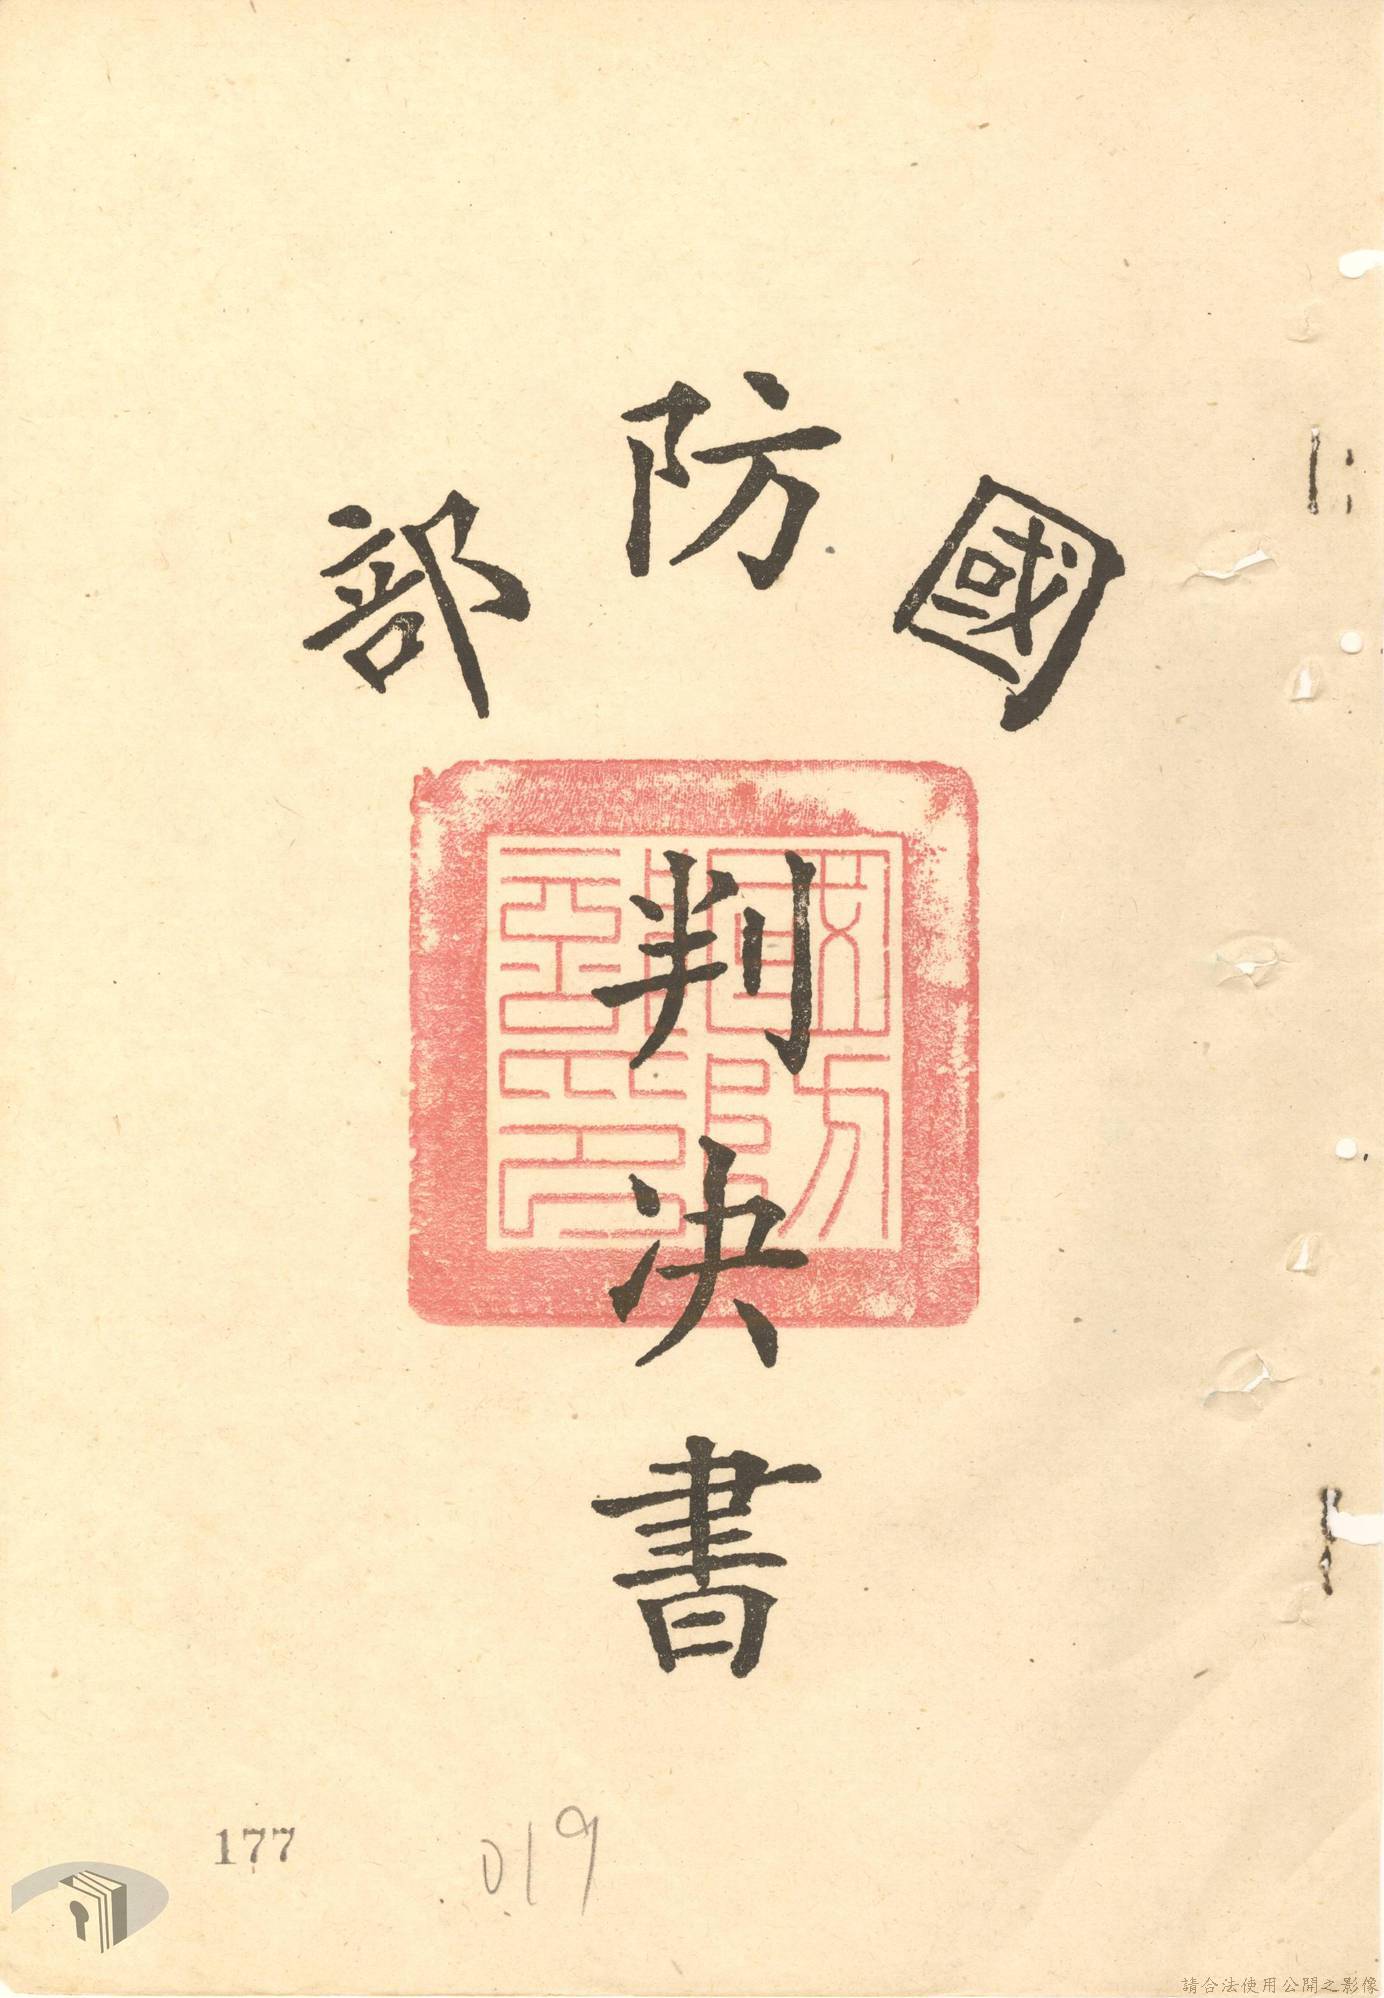 國防部
判決書
177
019
請合法使用公開之影像